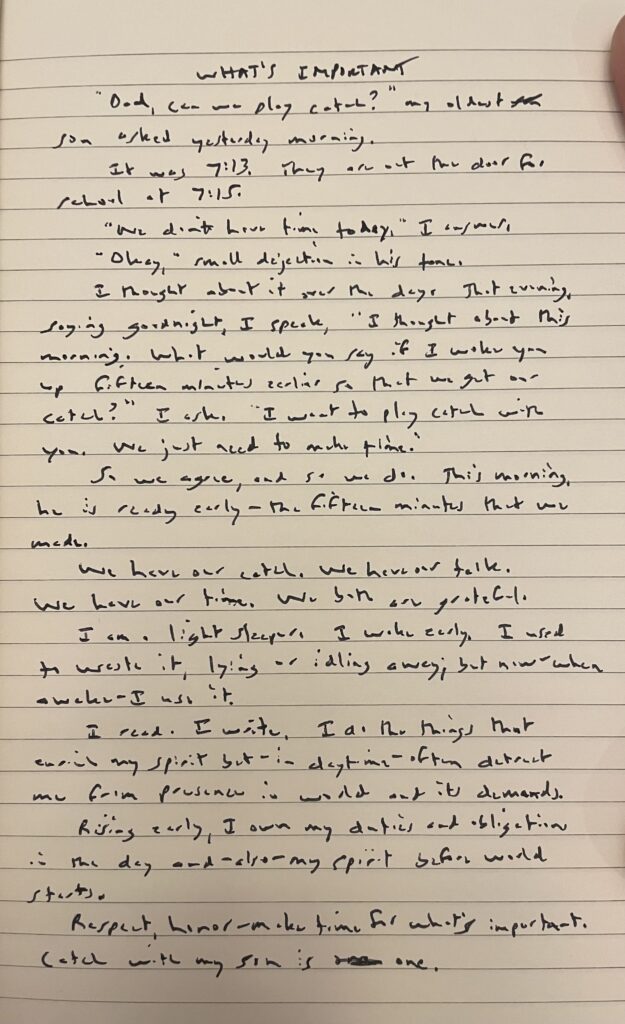 WHAT'S IMPORTANT
"Dad, can we play catch?" my oldest
son asked yesterday morning.
It was 7:13. They are out the door for
school at 7:15.
"We don't have time today," I answer.
"Okay," small dejection in his tone.
I thought about it over the day. That evening,
saying goodnight, I speak, "I thought about this
morning. What would you say if I woke you
up fifteen minutes earlier so that we get our
catch?" I ask. "I want to play catch with
you. We just need to make time."
So we agree, and so we do. This morning,
he is ready early—the fifteen minutes that we
made.
We have our catch. We have our talk.
We have our time. We both are grateful.
I am a light sleeper. I wake early. I used
to waste it, lying or idling away; but now—when
awake—I use it.
I read. I write. I do the things that
enrich my spirit but—in daytime—often detract
me from presence in world and its demands.
Rising early, I own my duties and obligation
in the day and—also—my spirit before world
starts.
Respect, honor—make time for what's important.
Catch with my son is one.